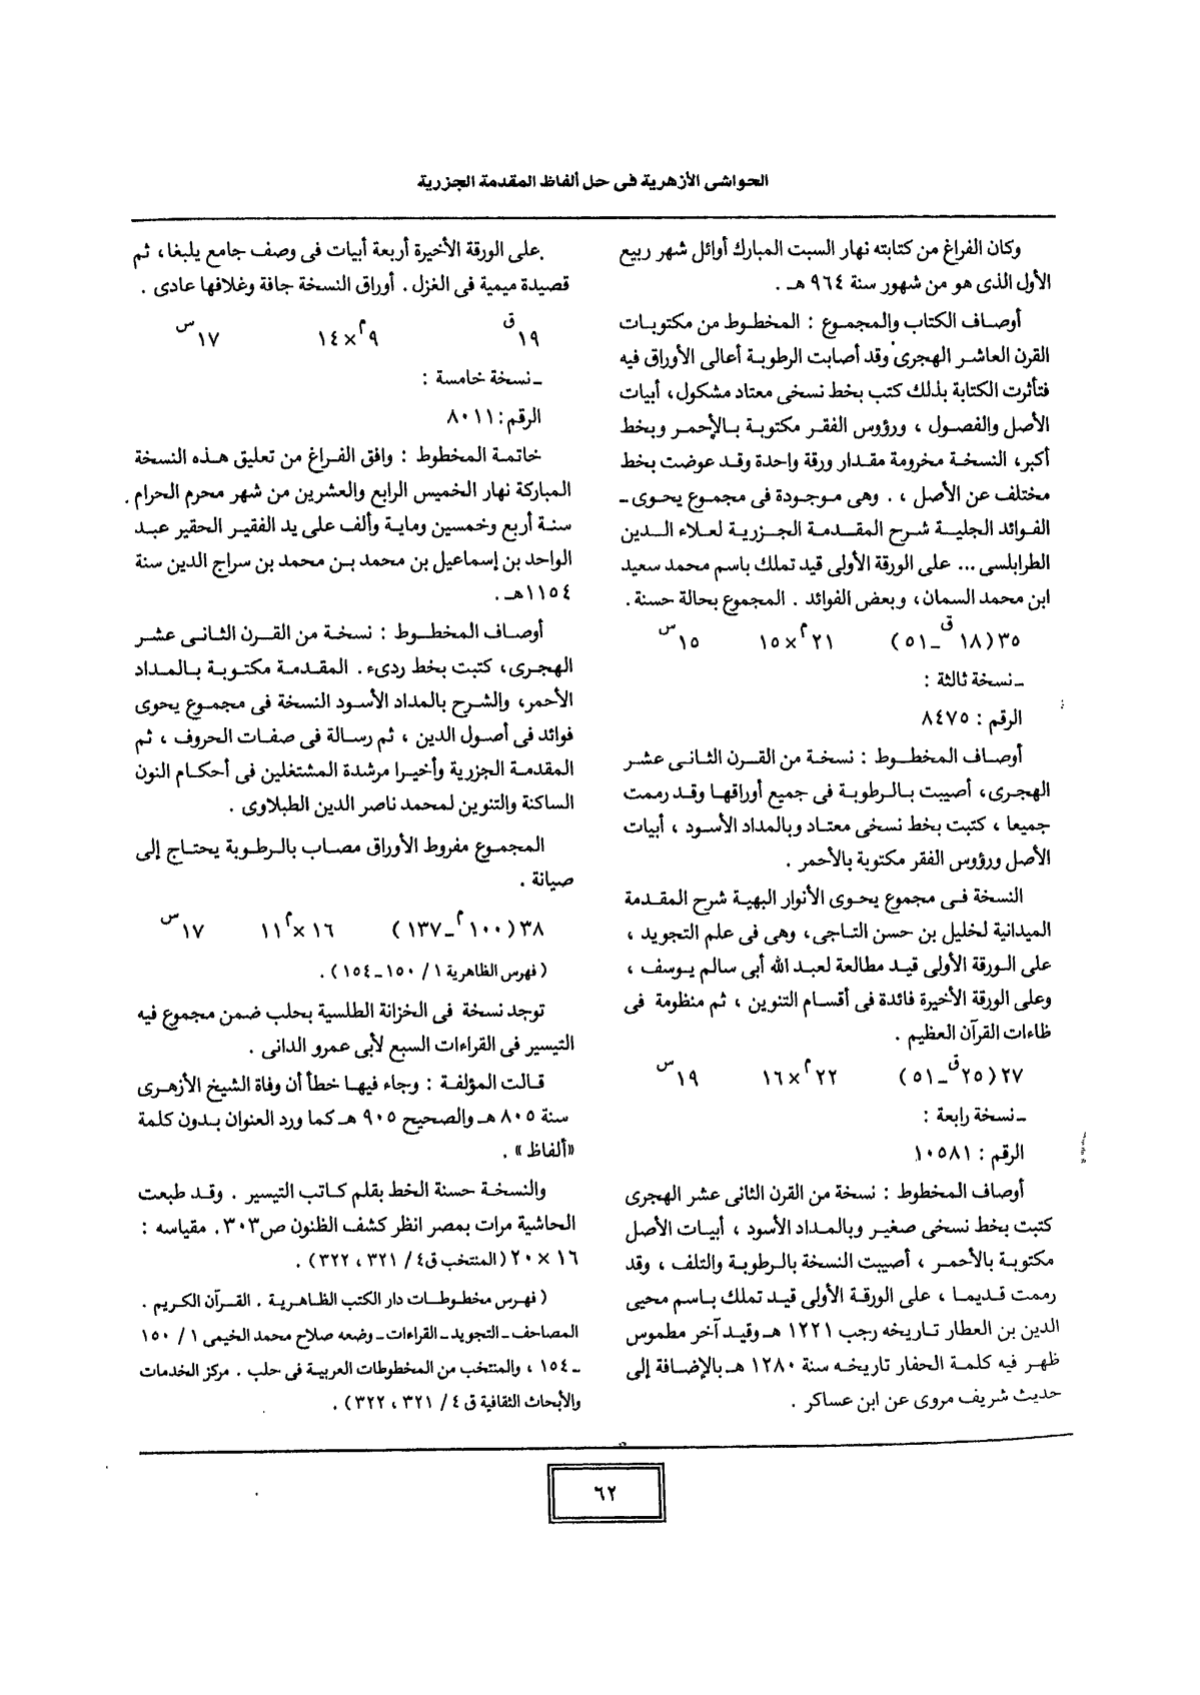 الحواشى الأزهرية فى حل ألفاظ المقدمة الجزرية
وكان الفراغ من كتابته نهار السبت المبارك أوائل شهر ربيع
الأول الذى هو من شهور سنة ٩٦٤ هـ .
أوصاف الكتاب والمجموع : المخطوط من مكتوبات
القرن العاشر الهجرى وقد أصابت الرطوبة أعالى الأوراق فيه
فتأثرت الكتابة بذلك كتب بخط نسخى معتاد مشكول، أبيات
الأصل والفصول ، ورؤوس الفقر مكتوبة بالأحمر وبخط
أكبر، النسخة مخرومة مقدار ورقة واحدة وقد عوضت بخط
مختلف عن الأصل ، . وهى موجودة فى مجموع يحوى ـ
الفوائد الجلية شرح المقدمة الجزرية لعلاء الدين
الطرابلسى ... على الورقة الأولى قيد تملك باسم محمد سعيد
ابن محمد السمان، وبعض الفوائد . المجموع بحالة حسنة .
٣٥ (١٨ ق ـ ٥١) ٢١ م × ١٥ ١٥ س
ـ نسخة ثالثة :
الرقم : ٨٤٧٥
أوصاف المخطوط : نسخة من القرن الثانى عشر
الهجرى، أصيبت بالرطوبة فى جميع أوراقها وقد رممت
جميعا ، كتبت بخط نسخى معتاد وبالمداد الأسود ، أبيات
الأصل ورؤوس الفقر مكتوبة بالأحمر .
النسخة فى مجموع يحوى الأنوار البهية شرح المقدمة
الميدانية لخليل بن حسن التاجى، وهى فى علم التجويد ،
على الورقة الأولى قيد مطالعة لعبد الله أبى سالم يوسف ،
وعلى الورقة الأخيرة فائدة فى أقسام التنوين ، ثم منظومة فى
ظاءات القرآن العظيم .
٢٧ (٢٥ ق ـ ٥١) ٢٢ م × ١٦ ١٩ س
ـ نسخة رابعة :
الرقم : ١٠٥٨١
أوصاف المخطوط : نسخة من القرن الثانى عشر الهجرى
كتبت بخط نسخى صغير وبالمداد الأسود ، أبيات الأصل
مكتوبة بالأحمر ، أصيبت النسخة بالرطوبة والتلف ، وقد
رممت قديما ، على الورقة الأولى قيد تملك باسم محيى
الدين بن العطار تاريخه رجب ١٢٢١ هـ وقيد آخر مطموس
ظهر فيه كلمة الحفار تاريخه سنة ١٢٨٠ هـ بالإضافة إلى
حديث شريف مروى عن ابن عساكر .
على الورقة الأخيرة أربعة أبيات فى وصف جامع يلبغا، ثم
قصيدة ميمية فى الغزل . أوراق النسخة جافة وغلافها عادى .
١٩ ق ٩ م × ١٤ ١٧ س
ـ نسخة خامسة :
الرقم : ٨٠١١
خاتمة المخطوط : وافق الفراغ من تعليق هذه النسخة
المباركة نهار الخميس الرابع والعشرين من شهر محرم الحرام .
سنة أربع وخمسين وماية وألف على يد الفقير الحقير عبد
الواحد بن إسماعيل بن محمد بن محمد بن سراج الدين سنة
١١٥٤ هـ .
أوصاف المخطوط : نسخة من القرن الثانى عشر
الهجرى، كتبت بخط ردىء . المقدمة مكتوبة بالمداد
الأحمر، والشرح بالمداد الأسود النسخة فى مجموع يحوى
فوائد فى أصول الدين ، ثم رسالة فى صفات الحروف ، ثم
المقدمة الجزرية وأخيرا مرشدة المشتغلين فى أحكام النون
الساكنة والتنوين لمحمد ناصر الدين الطبلاوى .
المجموع مفروط الأوراق مصاب بالرطوبة يحتاج إلى
صيانة .
٣٨ (١٠٠ م ـ ١٣٧) ١٦ م × ١١ ١٧ س
( فهرس الظاهرية ١ / ١٥٠ ـ ١٥٤ ) .
توجد نسخة فى الخزانة الطلسية بحلب ضمن مجموع فيه
التيسير فى القراءات السبع لأبى عمرو الدانى .
قالت المؤلفة : وجاء فيها خطأ أن وفاة الشيخ الأزهرى
سنة ٨٠٥ هـ والصحيح ٩٠٥ هـ كما ورد العنوان بدون كلمة
«ألفاظ » .
والنسخة حسنة الخط بقلم كاتب التيسير . وقد طبعت
الحاشية مرات بمصر انظر كشف الظنون ص٣٠٣. مقياسه :
١٦ × ٢٠ ( المنتخب ق٤ / ٣٢١ ، ٣٢٢) .
( فهرس مخطوطات دار الكتب الظاهرية . القرآن الكريم .
المصاحف ـ التجويد ـ القراءات ـ وضعه صلاح محمد الخيمى ١ / ١٥٠
ـ ١٥٤ ، والمنتخب من المخطوطات العربية فى حلب . مركز الخدمات
والأبحاث الثقافية ق ٤ / ٣٢١ ، ٣٢٢) .
٦٢